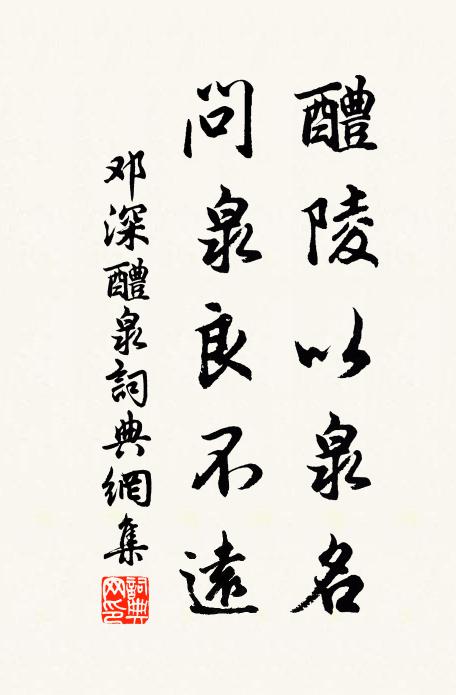 醴陵以泉名
問泉良不遠
邓深醴泉詞典網集
詞典
网印